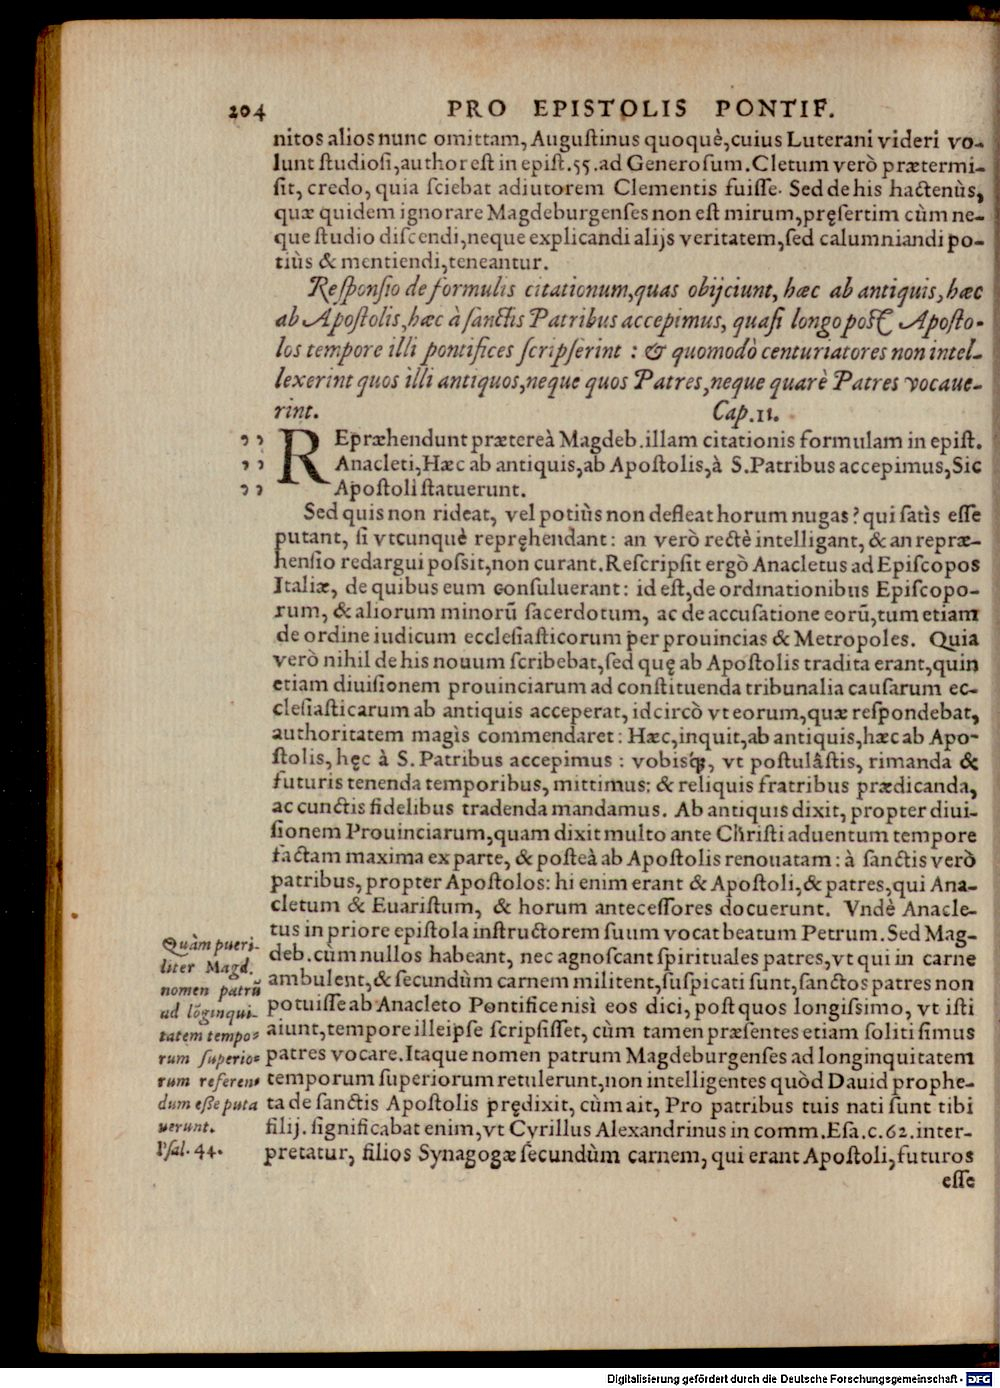 204 PRO EPISTOLIS PONTIF.
nitos alios nunc omittam, Auguſtinus quoquè, cuius Luterani videri vo-
lunt ſtudioſi, author eſt in epiſt. 55. ad Generoſum. Cletum verò prætermi-
ſit, credo, quia ſciebat adiutorem Clementis fuiſſe. Sed de his hactenùs,
quæ quidem ignorare Magdeburgenſes non eſt mirum, pręſertim cùm ne-
que ſtudio diſcendi, neque explicandi alijs veritatem, ſed calumniandi po-
tiùs & mentiendi, teneantur.
Reſponſio de formulis citationum, quas obijciunt, hæc ab antiquis, hæc
ab Apoſtolis, hæc à ſanctis Patribus accepimus, quaſi longo poſt Apoſto-
los tempore illi pontifices ſcripſerint : & quomodò centuriatores non intel-
lexerint quos illi antiquos, neque quos Patres, neque quarè Patres vocaue-
rint. Cap. 11.
,, REpræhendunt prætereà Magdeb. illam citationis formulam in epiſt.
,, Anacleti, Hæc ab antiquis, ab Apoſtolis, à S. Patribus accepimus, Sic
,, Apoſtoli ſtatuerunt.
Sed quis non rideat, vel potiùs non defleat horum nugas? qui ſatìs eſſe
putant, ſi vtcunquè repręhendant: an verò rectè intelligant, & an repræ-
henſio redargui poſsit, non curant. Reſcripſit ergò Anacletus ad Epiſcopos
Italiæ, de quibus eum conſuluerant: id eſt, de ordinationibus Epiſcopo-
rum, & aliorum minorũ ſacerdotum, ac de accuſatione eorũ, tum etiam
de ordine iudicum eccleſiaſticorum per prouincias & Metropoles. Quia
verò nihil de his nouum ſcribebat, ſed quę ab Apoſtolis tradita erant, quin
etiam diuiſionem prouinciarum ad conſtituenda tribunalia cauſarum ec-
cleſiaſticarum ab antiquis acceperat, idcircò vt eorum, quæ reſpondebat,
authoritatem magìs commendaret: Hæc, inquit, ab antiquis, hæc ab Apo-
ſtolis, hęc à S. Patribus accepimus : vobisq́;, vt poſtulâſtis, rimanda &
futuris tenenda temporibus, mittimus: & reliquis fratribus prædicanda,
ac cunctis fidelibus tradenda mandamus. Ab antiquis dixit, propter diui-
ſionem Prouinciarum, quam dixit multo ante Chriſti aduentum tempore
factam maxima ex parte, & poſteà ab Apoſtolis renouatam: à ſanctis verò
patribus, propter Apoſtolos: hi enim erant & Apoſtoli, & patres, qui Ana-
cletum & Euariſtum, & horum anteceſſores docuerunt. Vndè Anacle-
tus in priore epiſtola inſtructorem ſuum vocat beatum Petrum. Sed Mag-
deb. cùm nullos habeant, nec agnoſcant ſpirituales patres, vt qui in carne
ambulent, & ſecundùm carnem militent, ſuſpicati ſunt, ſanctos patres non
potuiſſe ab Anacleto Pontifice nisì eos dici, poſt quos longiſsimo, vt iſti
aiunt, tempore ille ipſe ſcripſiſſet, cùm tamen præſentes etiam ſoliti ſimus
patres vocare. Itaque nomen patrum Magdeburgenſes ad longinquitatem
temporum ſuperiorum retulerunt, non intelligentes quòd Dauid prophe-
ta de ſanctis Apoſtolis prędixit, cùm ait, Pro patribus tuis nati ſunt tibi
filij. ſignificabat enim, vt Cyrillus Alexandrinus in comm. Eſa. c. 62. inter-
pretatur, filios Synagogæ ſecundùm carnem, qui erant Apoſtoli, futuros
eſſe
Quàm pueri-
liter Magd.
nomen patrũ
ad lõginqui-
tatem tempo-
rum ſuperio-
rum referen-
dum eſſe puta
uerunt.
Pſal. 44.
Digitalisierung gefördert durch die Deutsche Forschungsgemeinschaft - DFG